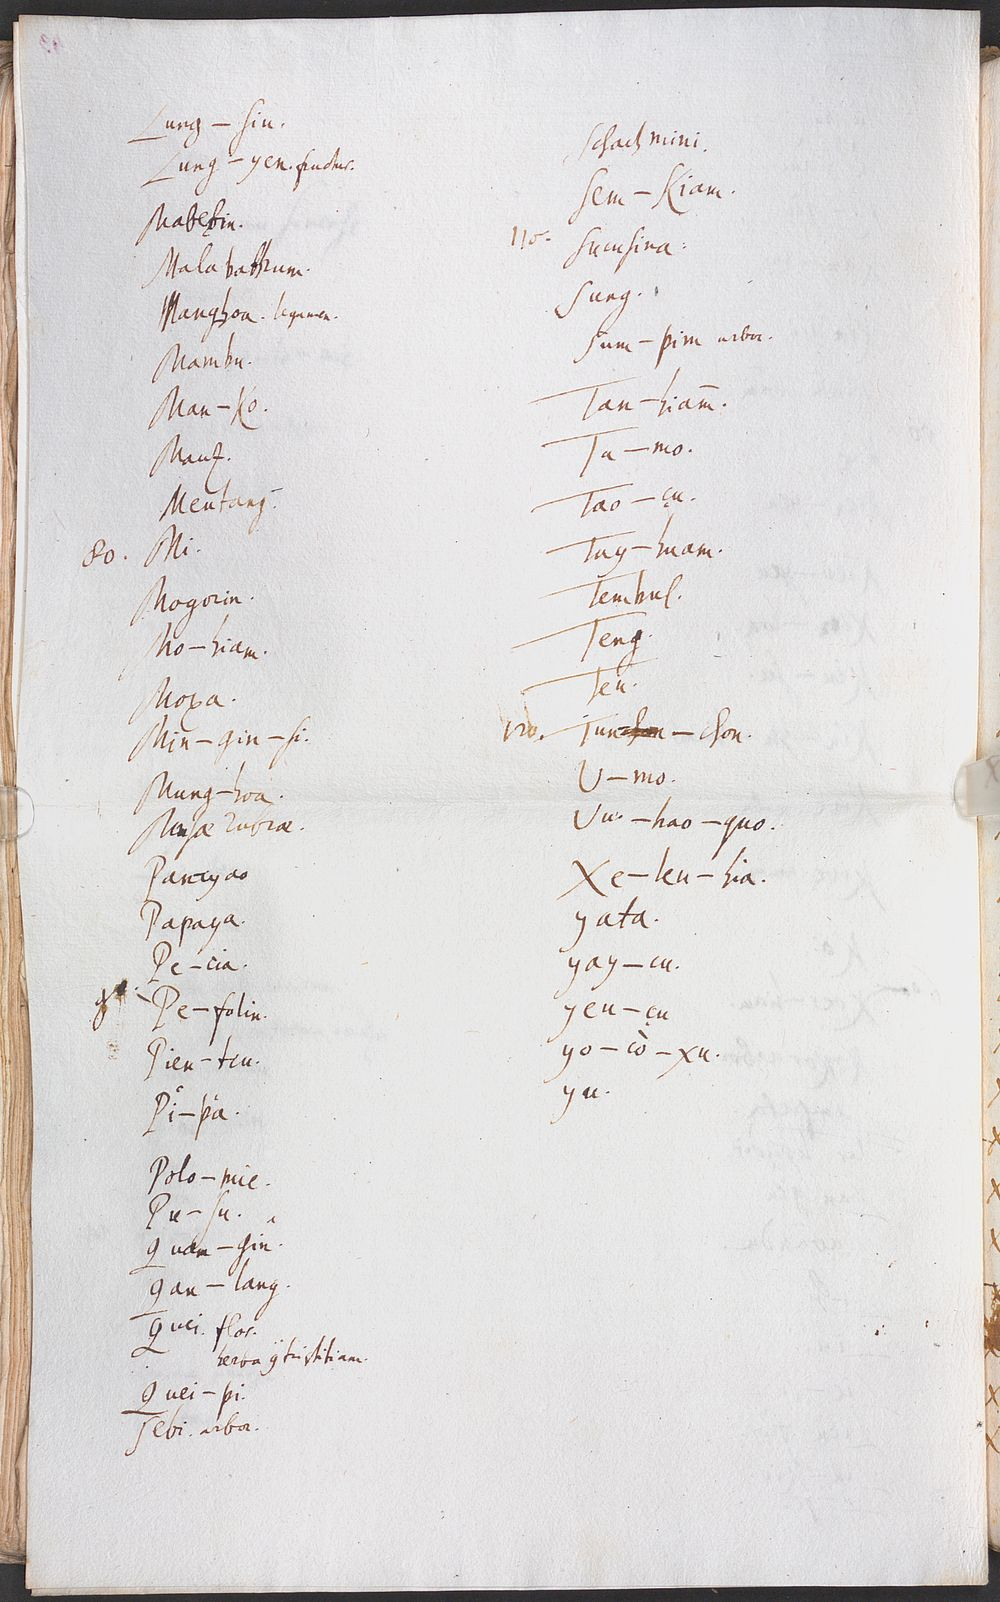 Lung – siu.
Lung – yen. fructus.
Mabebin.
Malabathrum.
Manghoa. legumen.
Mambu.
Man – Ko.
Mauz.
Mentang.
80. Mi.
Mogorin.
Mo – hiam.
Moxa.
Min – gin – si.
Mung – hoa.
Musæ rubræ.
Pancyao
Papaya.
Pe – cia.
Pe – folin.
Pien – teu.
Pi – pa.
Polo – mie.
Pu – su.
Quan – gin.
Qan – lang.
Quei. flos.
herba q̈ tristitiam.
Quei – pi.
Sebi. arbor.
Schachmini.
Sem – Kiam.
110. Sucusina.
Sung.
Sum – pim arbor.
Tan – hiam̄.
Ta – mo.
Tao – çu.
Tay – huam.
Tembul.
Teng.
Teu.
120. Tun – chon.
U – mo.
Vu – hao – quo.
Xe – leu – hia.
yata.
yay – cu.
yeu – çu
yo – cò – xu.
yu.